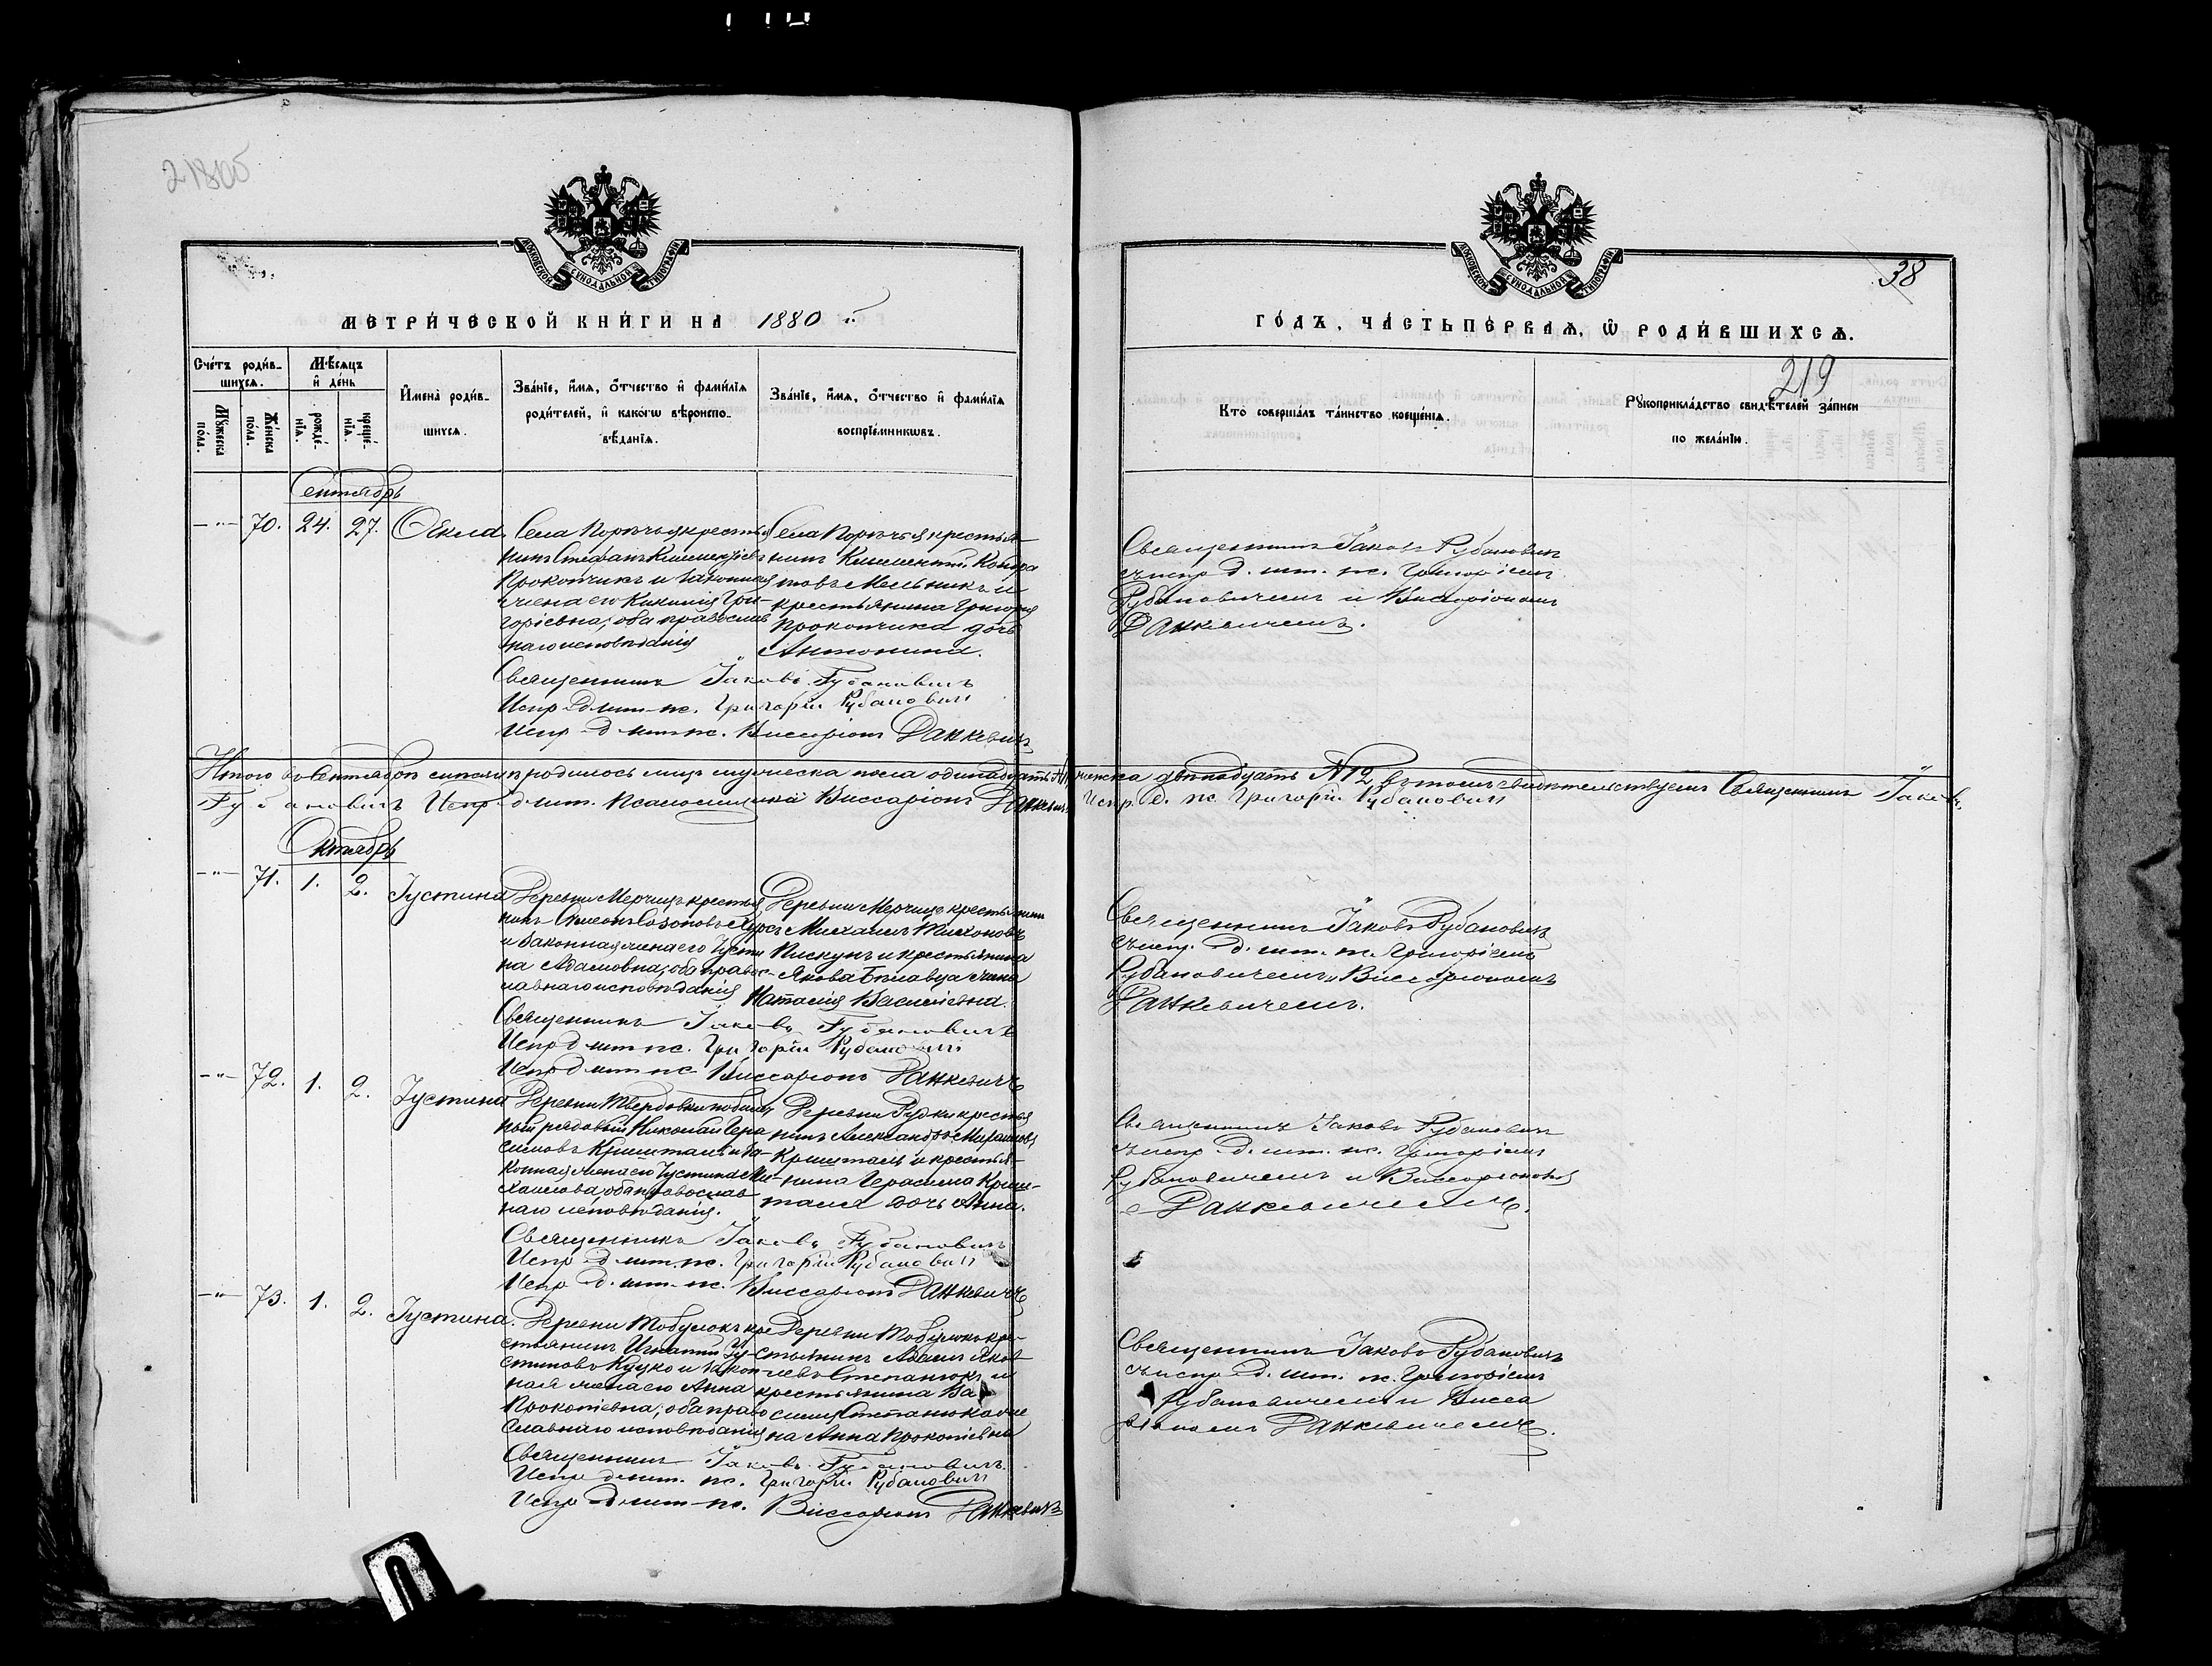 218об
МОСКОВСКОЙ СѴНОДАЛЬНОЙ ТИПОГРАФІИ
МЕТРИ́ЧЕСКОЙ КНИ́ГИ НА 1880 г.
Сче́тъ роди́в-
шихсѧ.
Мѣ́сѧцъ
и҆ де́нь
Мꙋ́жеска
по́ла.
Же́нска
по́ла.
рожде́-
нїѧ.
креще́-
нїѧ.
И҆мена̀ роди́в-
шихсѧ.
Зва́нїе, и҆́мѧ, ѻ҆́тчество и҆ фами́лїѧ
роди́телей, и҆ како́гѡ вѣроиспо-
вѣ́данїѧ.
Зва́нїе, и҆́мѧ, ѻ҆́тчество и҆ фами́лїѧ
воспрїе́мникѡвъ.
Сентябрь
-"- 70. 24. 27. Ѳекла
Села Порѣчья крестья
нинъ Стефанъ Климентіевъ
Прокопчикъ и законная
жена его Килилія Гри-
горіевна; оба православ
наго исповѣданія
Села Порѣчья крестья-
нинъ Климентій Кондра
товъ Мельникъ и
крестьянина Григорія
Прокопчика дочь
Антонина.
Священникъ Іаковъ Рубановичъ
Испр д. шт. пс. Григорій Рубанович
Испр д шт пс. Виссаріонъ Данкевичъ
Итого въ Сентябрѣ мѣсяцѣ родилось лицъ мужеска пола одинадцать №11, женска двѣнадцать №12, въ томъ свидѣтельствуемъ Священникъ Іаковъ
Рубановичъ Испр. д. шт. Псаломщика Виссаріонъ Данкевичъ Испр. д. пс. Григорій Рубанович
Октябрь
-"- 71. 1. 2. Іустина
Деревни Мерчицъ крестья
нинъ Симеонъ Созоновъ
и законная жена его Іусти
на Адамовна; оба правос-
лавнаго исповѣданія
Деревни Мерчицъ крестьянинъ
Михаилъ Тихоновъ
Пискунъ и крестьянина
Якова Билавца жена
Наталія Васильевна.
Священникъ Іаковъ Рубановичъ
Испр д шт пс. Григорій Рубанович
Испр д шт пс Виссаріонъ Данкевичъ
-"- 72. 1. 2. Іустина
Деревни Твердовки
рядовый Николай Гера
симовъ Криштапъ и за-
конная жена его Іустина Ми-
хайлова, оба православ
наго исповѣданія.
Деревни Рудки крестья
нинъ Александръ
Криштапъ и крестья-
нина Герасима Криш-
тапа дочь Анна.
Священникъ Іаковъ Рубановичъ
Испр д. шт. пс. Григорій Рубанович
Испр д. шт. пс. Виссаріонъ Данкевичъ
-"- 73. 1. 2. Іустина.
Деревни Тобулокъ кре
стьянинъ Игнатій Іу-
стиновъ Куцко и закон
ная жена его Анна
Прокопіевна; оба право
славнаго исповѣданія
Деревни Тобулокъ кре-
стьянинъ Адамъ Яков
левъ Степанюкъ и
крестьянина Ва
силія Степанюка же
на Анна Прокопіевна
Священникъ Іаковъ Рубановичъ.
Испр д шт. пс. Григорій Рубанович
Испр д шт пс. Виссаріонъ Данкевичъ
МОСКОВСКОЙ СѴНОДАЛЬНОЙ ТИПОГРАФІИ
38
ГО́ДЪ, ЧА́СТЬ ПЕ́РВАѦ, Ѡ҆ РОДИ́ВШИХСѦ.
219
Кто̀ соверша́лъ та́инство креще́нїѧ.
Рꙋкоприкла́дство свидѣ́телей за́писи
по жела́нїю.
Священникъ Іаковъ Рубановичъ
съ испр. д. шт. пс. Григоріемъ
Рубановичемъ и Виссаріономъ
Данкевичемъ.
Священникъ Іаковъ Рубановичъ
съ испр. д. шт. пс. Григоріемъ
Рубановичемъ и Виссаріономъ
Данкевичемъ.
Священникъ Іаковъ Рубановичъ
съ испр д. шт. пс. Григоріемъ
Рубановичемъ и Виссаріономъ
Данкевичемъ.
Священникъ Іаковъ Рубановичъ
съ испр д. шт. пс. Григоріемъ
Рубановичемъ и Висса
ріономъ Данкевичемъ.